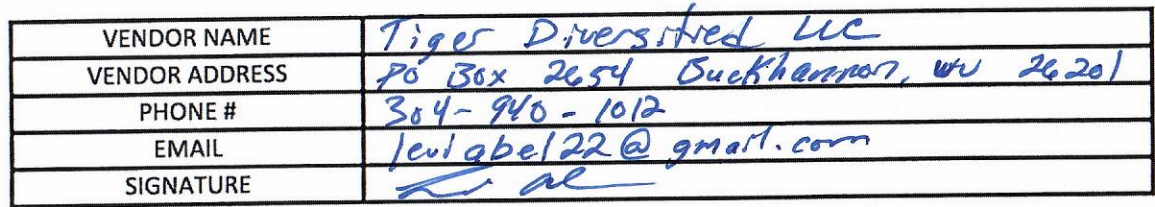 VENDOR NAME Tiger Diversified LLC
VENDOR ADDRESS PO Box 2654 Buckhannon, WV 26201
PHONE # 304-940-1012
EMAIL leviabel22@gmail.com
SIGNATURE